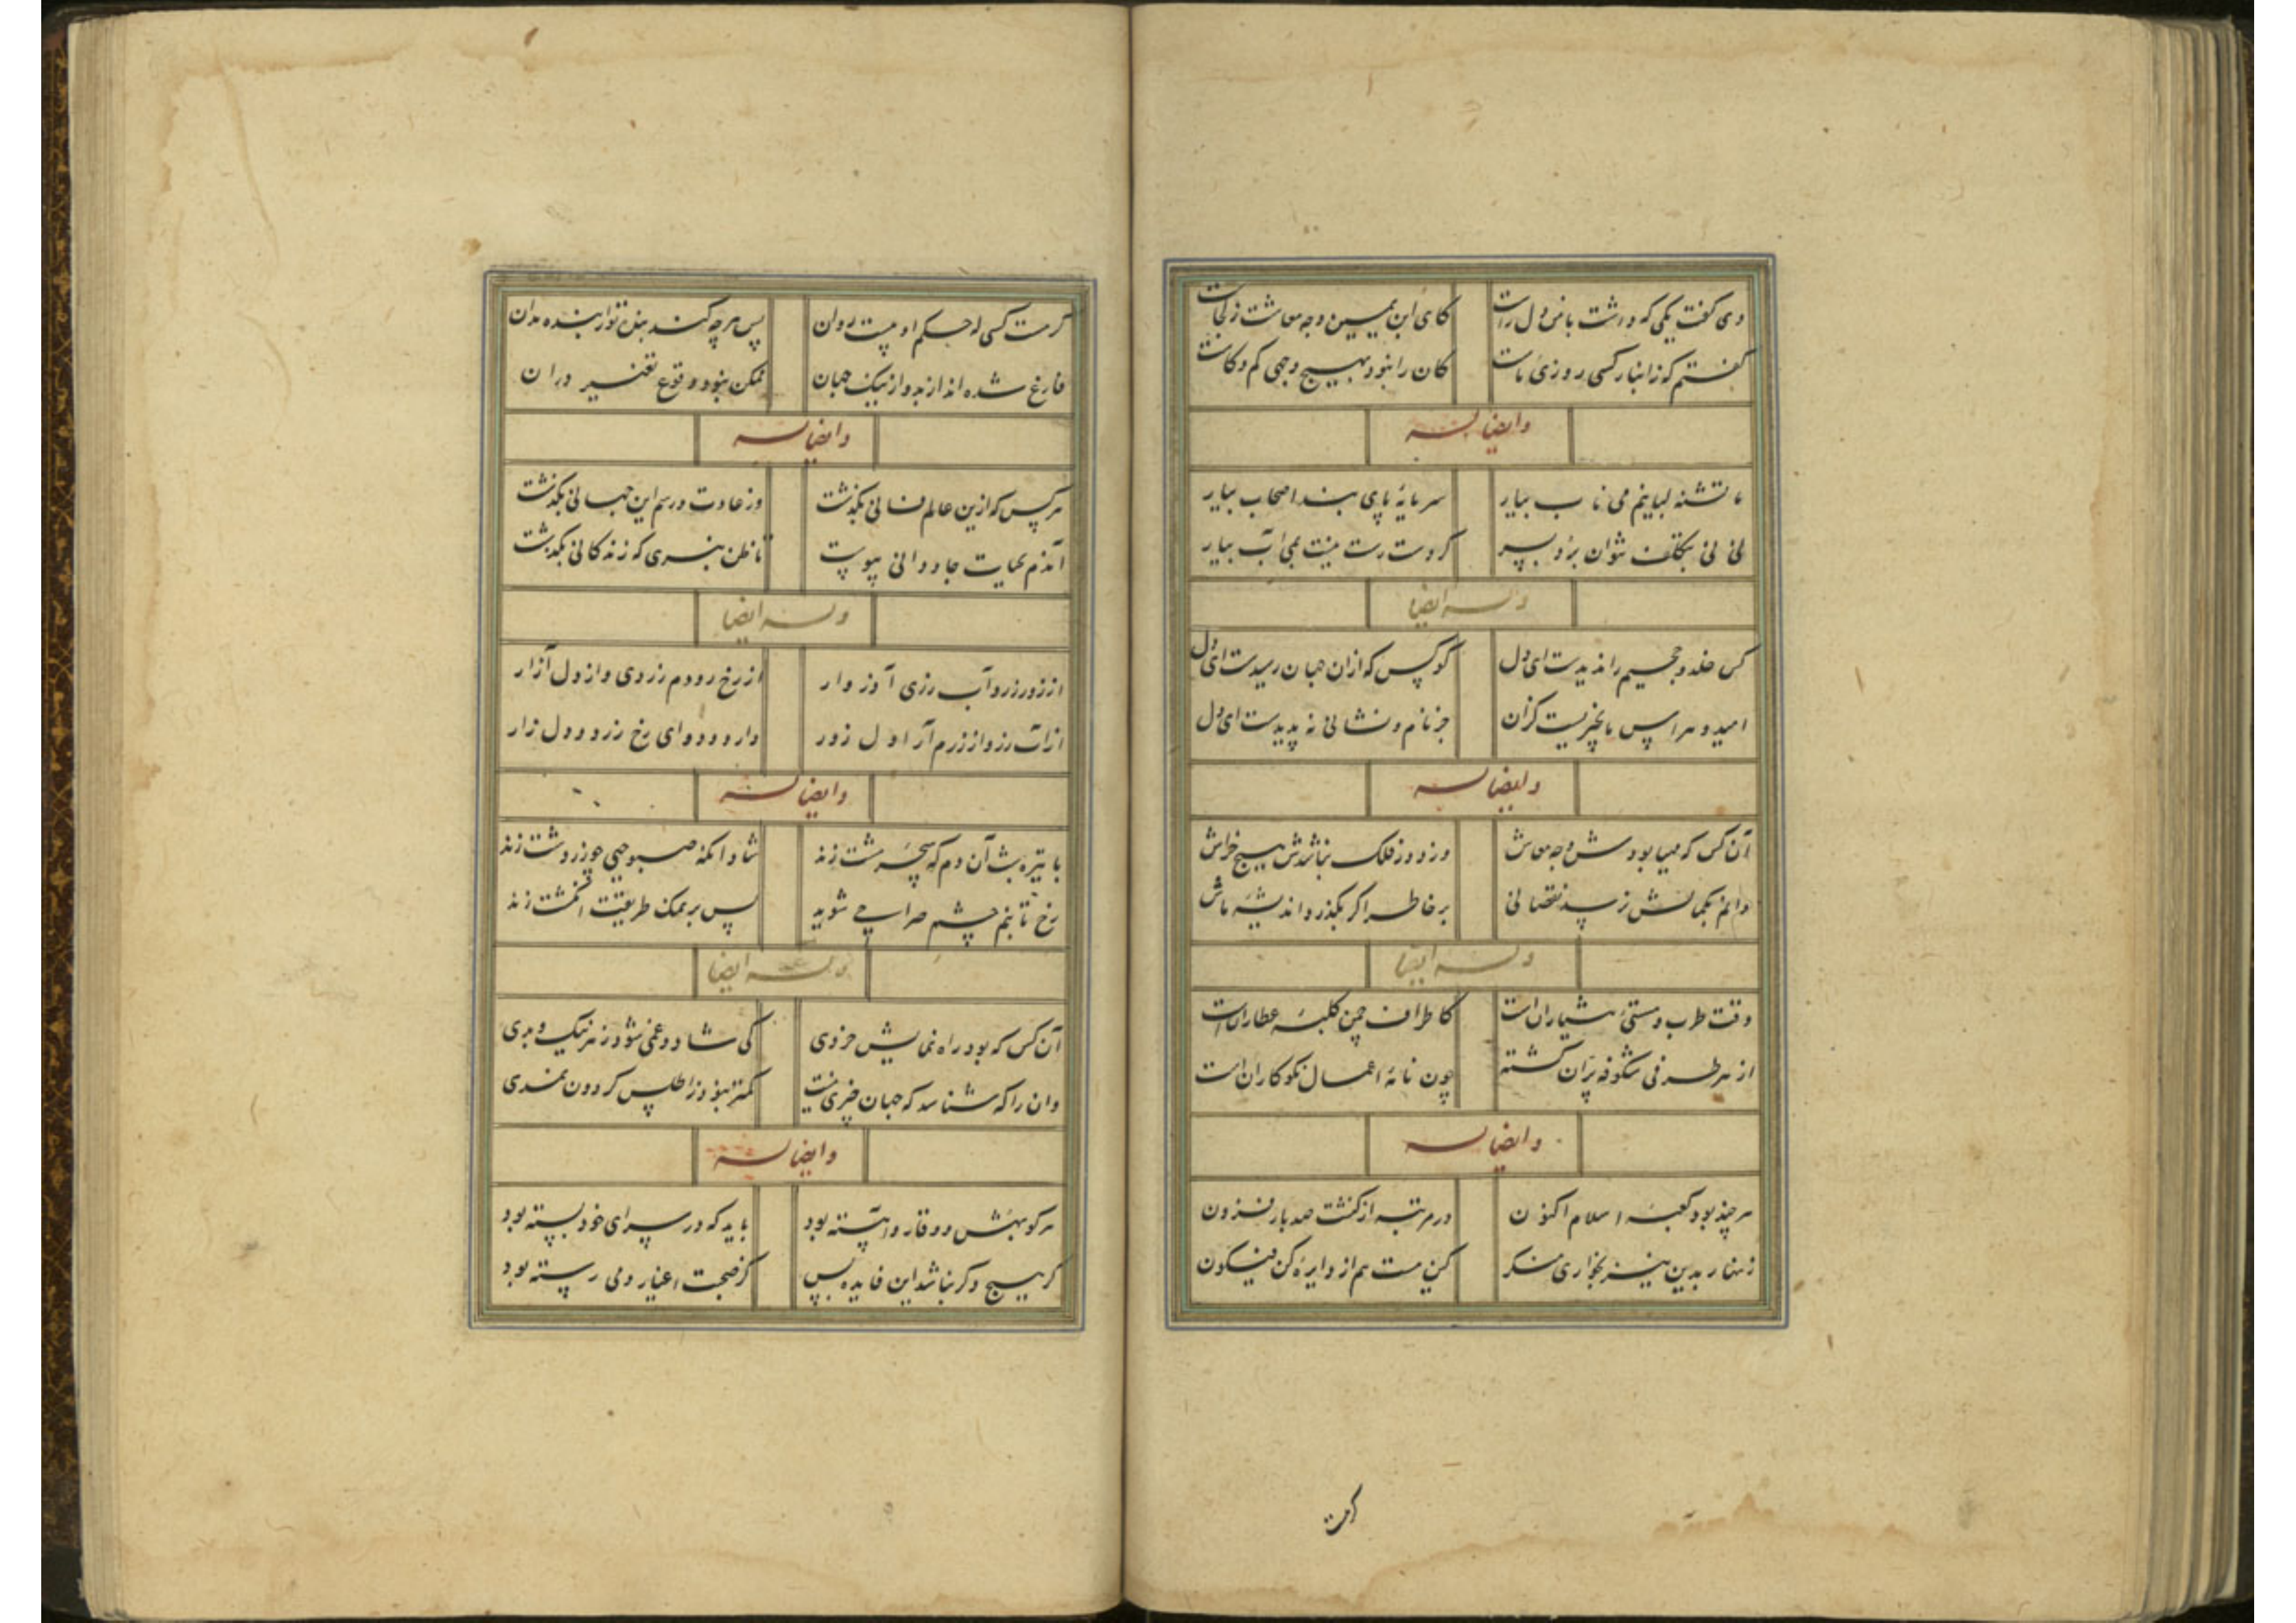 دی گفت یکی که داشت با من دل راست
کای ابن یمین وجه معاشت ز کجاست
گفتم که ز انبار کسی روزی ماست
کان را نبود بهیچ وجهی کم و کاست
وایضاله
ما تشنه لبانیم می ناب بیار
سرمایهٔ پای بند اصحاب بیار
نی نی بتکلف نتوان برد بسر
گر دست رست نیست بمی آب بیار
وله ایضا
کس خلد و جحیم را ندیدست ای دل
گو کس که از آن جهان رسیدست ای دل
امید و هراس ما بچیزیست کزان
جز نام و نشانی نه پدیدست ای دل
وایضاله
آن کس که مهیا بودش وجه معاش
وز دور فلک نباشدش هیچ خراش
دانم بکمالش نرسد نقصانی
بر خاطر اگر بگذرد اندیشه ماش
وله ایضا
وقت طرب و مستی هشیاران است
کاطراف چمن کلبهٔ عطاران است
از هر طرفی شکوفه پران گشته
چون نامهٔ اعمال نکوکاران است
وایضاله
هر چند بود کعبهٔ اسلام اکنون
در مرتبه از کنشت صد بار فزون
زنهار بدین نیز بخواری منگر
کین هست هم از دایرهٔ کن فیکون
گر هست
گر هست کسی که حکم او هست روان
پس هرچه کند بنده تو از بنده مدان
فارغ شده‌اند از بد و از نیک جهان
ممکن نبود وقوع تغییر در آن
وایضاله
هر کس که ازین عالم فانی بگذشت
وز عادت و رسم این جهانی بگذشت
آندم بحیات جاودانی پیوست
تا ظن نبری که زندگانی بگذشت
وله ایضا
از زور زر و آب رزی آور
از رخ رودم زردی و از دل آزار
از آب رز و از زرم آر اول زور
دارو و دوای رخ زرد و دل زار
وایضاله
با تیره شب آن دم که سحر مشت زند
شاد آنکه صبوحی چو زردشت زند
رخ
پس بر نمک طریقت انگشت زند
وله ایضا
آن کس که بود راه نمایش خردی
کی شاد و غمی شود ز هر نیک و بدی
وان را که شناسد که جهان چیزی نیست
کمتر نبود ز اطلس گردون نمدی
وایضاله
هر کو بهش و وقار و آهسته بود
باید که در سرای خود بسته بود
گر هیچ دگر نباشد این فایده بس
کز صحبت اغیار دمی رسته بود